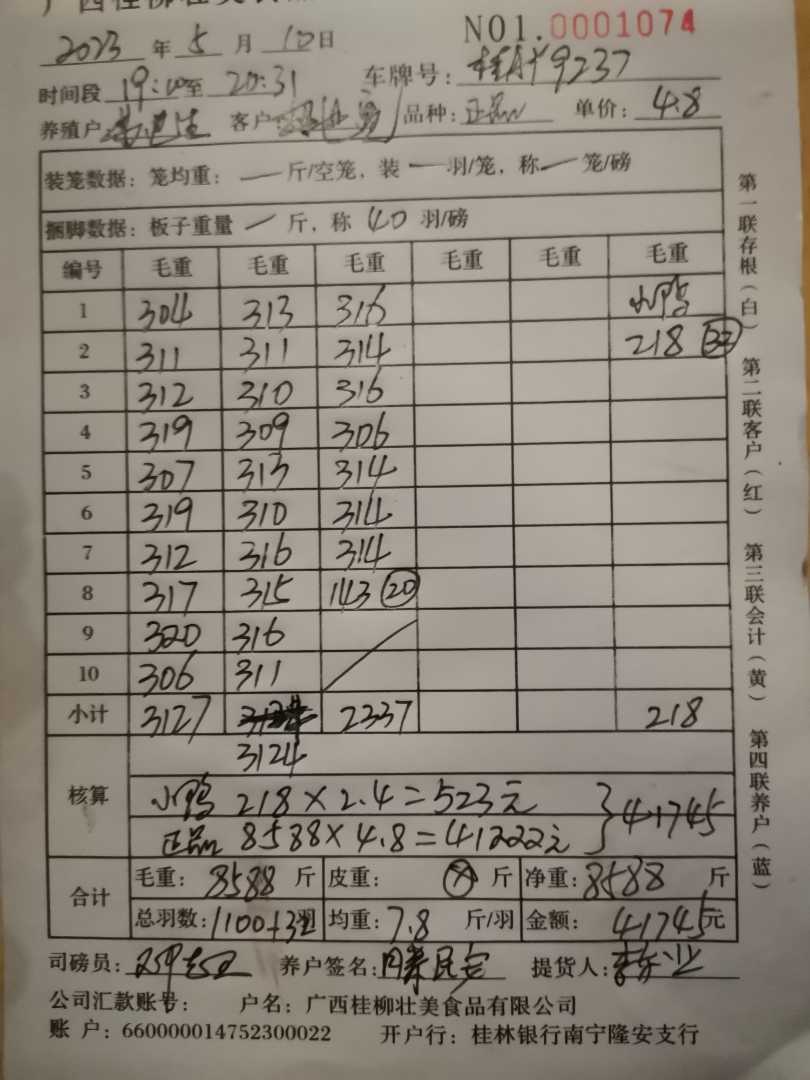 NO1.0001074
2023 年 5 月 10 日
时间段 19:00 至 20:31 车牌号: 9237
养殖户 客户 品种: 正品 单价: 4.8
装笼数据: 笼均重: — 斤/空笼, 装 — 羽/笼, 称 — 笼/磅
捆脚数据: 板子重量 — 斤, 称 40 羽/磅
编号 毛重 毛重 毛重 毛重 毛重 毛重
1 304 313 316 小鸭
2 311 311 314 218 32
3 312 310 316
4 319 309 306
5 307 313 314
6 319 310 314
7 312 316 314
8 317 315 143 20
9 320 316
10 306 311
小计 3127 2337 218
3124
核算 小鸭 218 × 2.4 = 523元
正品 8588 × 4.8 = 41222元 } 41745
合计 毛重: 8588 斤 皮重: 斤 净重: 8588 斤
总羽数: 1100+32 羽 均重: 7.8 斤/羽 金额: 41745元
司磅员: 养户签名: 提货人:
公司汇款账号: 户名: 广西桂柳壮美食品有限公司
账 户: 660000014752300022 开户行: 桂林银行南宁隆安支行
第一联存根(白) 第二联客户(红) 第三联会计(黄) 第四联养户(蓝)